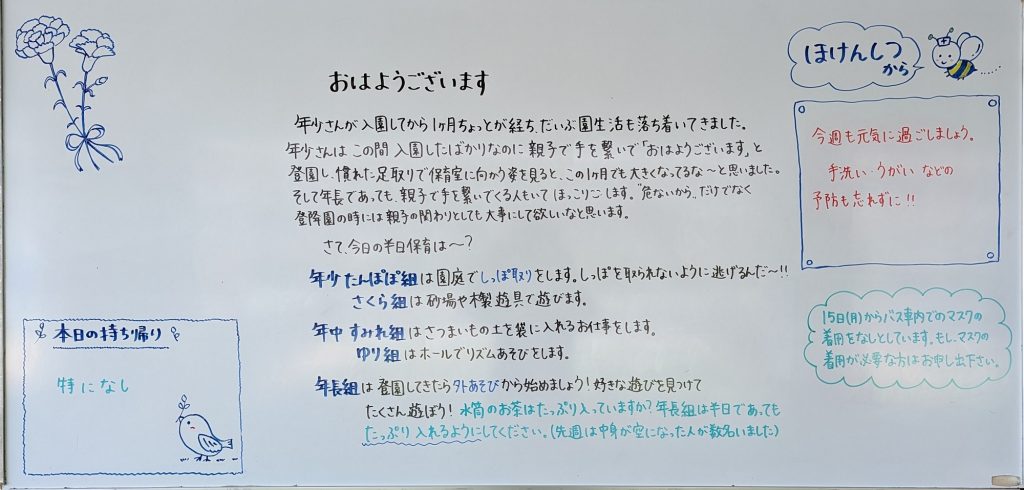 おはようございます
年少さんが入園してから1ヶ月ちょっとが経ち、だいぶ園生活も落ち着いてきました。
年少さんはこの間入園したばかりなのに親子で手を繋いで「おはようございます」と
登園し、慣れた足取りで保育室に向かう姿を見ると、この1ヶ月でも大きくなってるな〜と思いました。
そして年長であっても、親子で手を繋いでくる人もいてほっこりします。"危ないから"だけでなく
登降園の時には親子の関わりとしても大事にして欲しいなと思います。
さて、今日の半日保育は〜?
年少 たんぽぽ組は園庭でしっぽ取りをします。しっぽを取られないように逃げるんだ〜!!
さくら組は砂場や木製遊具で遊びます。
年中 すみれ組はさつまいもの土を袋に入れるお仕事をします。
ゆり組はホールでリズムあそびをします。
年長組は登園してきたら外あそびから始めましょう!好きな遊びを見つけて
たくさん遊ぼう!水筒のお茶はたっぷり入っていますか?年長組は半日であっても
たっぷり入れるようにしてください。(先週は中身が空になった人が数名いました)
本日の持ち帰り
特になし
ほけんしつ
から
今週も元気に過ごしましょう。
手洗い・うがいなどの
予防も忘れずに!!
15日(月)からバス車内でのマスクの
着用をなしとしています。もし、マスクの
着用が必要な方はお申し出下さい。